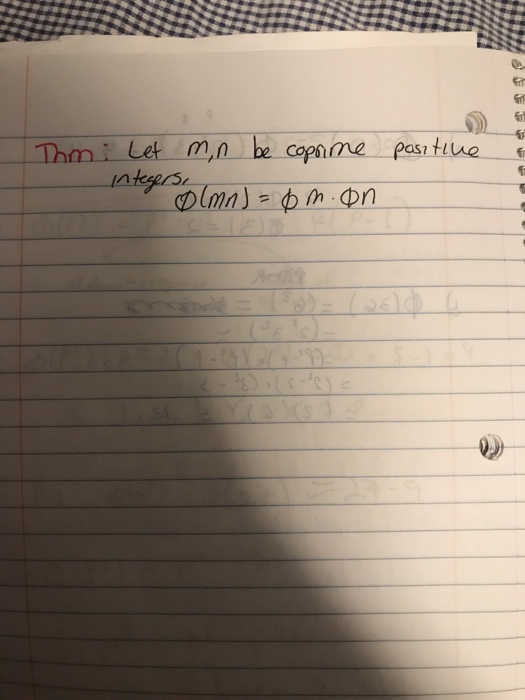 Thm: Let m,n be coprime positive
integers,
Φ(mn) = ϕ m · Φn